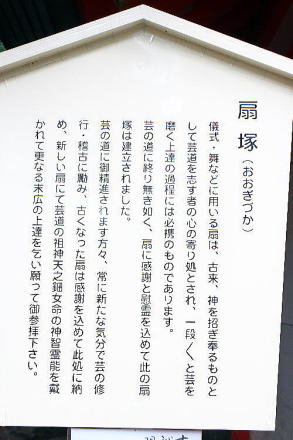 扇塚(おおぎづか)
儀式・舞などに用いる扇は、古来、神を招ぎ奉るものと
して芸道を志す者の心の寄り処とされ、一段〱と芸を
磨く上達の過程には必携のものであります。
芸の道に終り無き如く、扇に感謝と慰霊を込めて此の扇
塚は建立されました。
芸の道に御精進されます方々、常に新たな気分で芸の修
行・稽古に励み、古くなった扇は感謝を込めて此処に納
め、新しい扇にて芸道の祖神天之鈿女命の神智霊能を戴
かれて更なる末広の上達を乞い願って御参拝下さい。